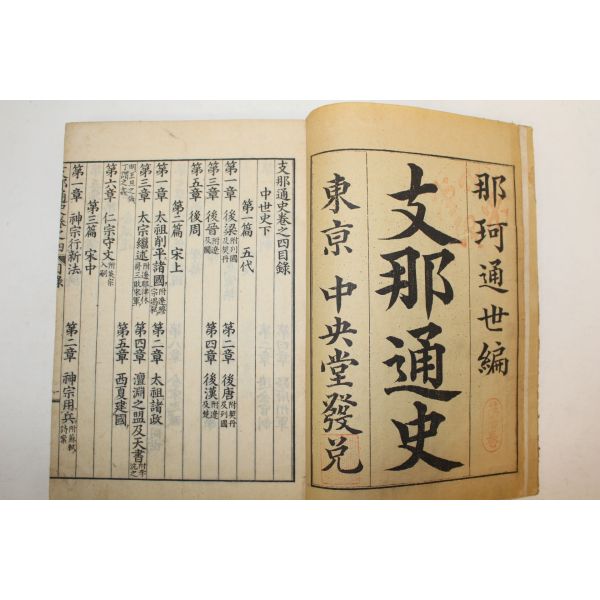 那珂通世編
支那通史
東京 中央堂發兌
支那通史卷之四目錄
中世史下
第一篇 五代
第一章 後梁附列國及契丹 第二章 後唐附契丹及列國
第三章 後晉附遼及閩 第四章 後漢附遼及楚
第五章 後周
第二篇 宋上
第一章 太祖削平諸國 第二章 太祖諸政
第三章 太宗繼述 第四章 澶淵之盟及天書
第五章 西夏建國
第六章 仁宗守文
第三篇 宋中
第一章 神宗行新法 第二章 神宗用兵